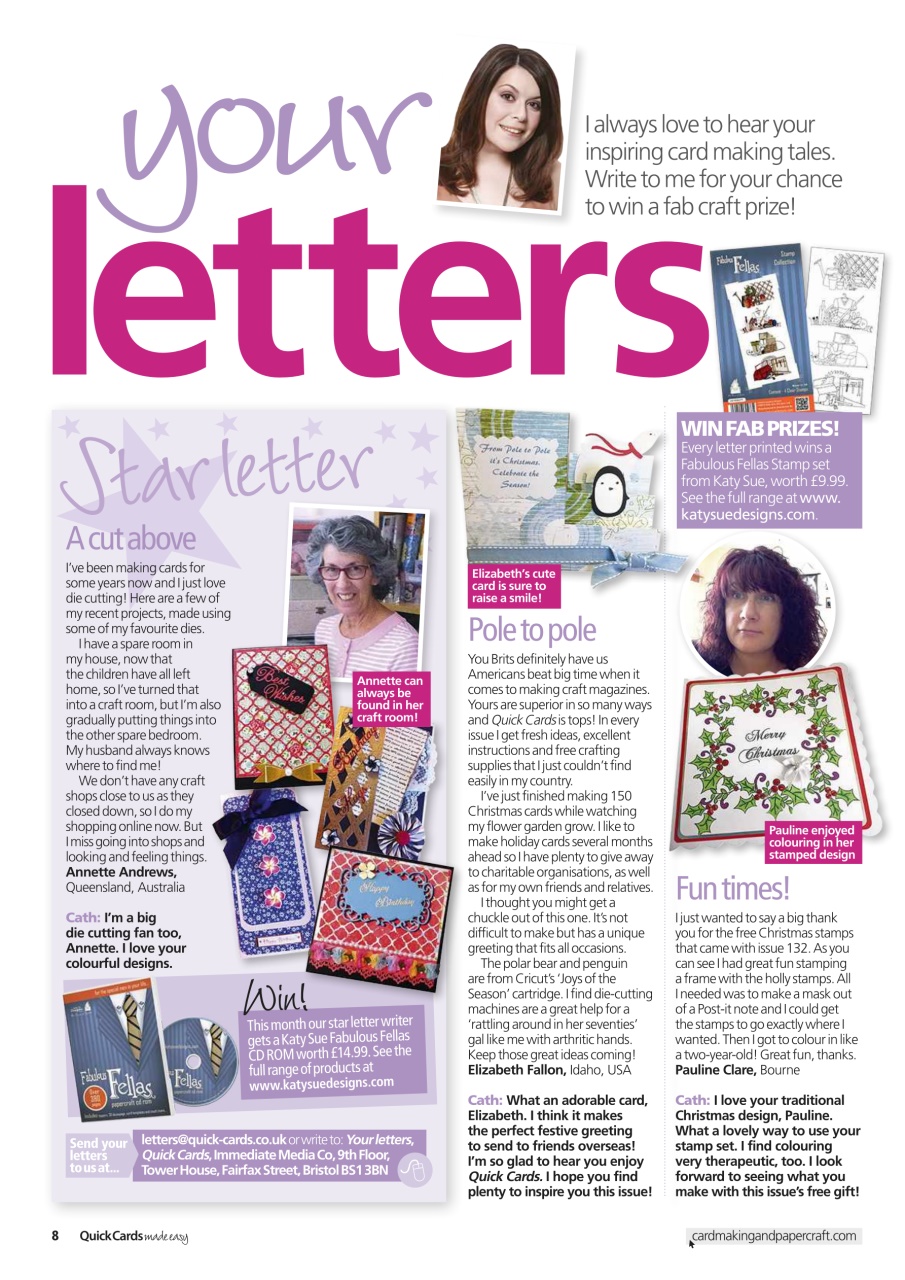 your
letters
I always love to hear your
inspiring card making tales.
Write to me for your chance
to win a fab craft prize!
Fabulous
Fellas
Stamp
Collection
WIN FAB PRIZES!
Every letter printed wins a
Fabulous Fellas Stamp set
from Katy Sue, worth £9.99.
See the full range at www.
katysuedesigns.com.
Star letter
A cut above
I've been making cards for
some years now and I just love
die cutting! Here are a few of
my recent projects, made using
some of my favourite dies.
I have a spare room in
my house, now that
the children have all left
home, so I've turned that
into a craft room, but I'm also
gradually putting things into
the other spare bedroom.
My husband always knows
where to find me!
We don't have any craft
shops close to us as they
closed down, so I do my
shopping online now. But
I miss going into shops and
looking and feeling things.
Annette Andrews,
Queensland, Australia
Cath: I'm a big
die cutting fan too,
Annette. I love your
colourful designs.
Best
Wishes
Annette can
always be
found in her
craft room!
Happy
Birthday
Win!
This month our star letter writer
gets a Katy Sue Fabulous Fellas
CD ROM worth £14.99. See the
full range of products at
www.katysuedesigns.com
for the special men in your life...
Fabulous
Fellas
papercraft cd rom
Over
280
Fellas
Send your
letters
to us at...
letters@quick-cards.co.uk or write to: Your letters,
Quick Cards, Immediate Media Co, 9th Floor,
Tower House, Fairfax Street, Bristol BS1 3BN
From Pole to Pole
it's Christmas.
Celebrate the
Season!
Elizabeth's cute
card is sure to
raise a smile!
Pole to pole
You Brits definitely have us
Americans beat big time when it
comes to making craft magazines.
Yours are superior in so many ways
and Quick Cards is tops! In every
issue I get fresh ideas, excellent
instructions and free crafting
supplies that I just couldn't find
easily in my country.
I've just finished making 150
Christmas cards while watching
my flower garden grow. I like to
make holiday cards several months
ahead so I have plenty to give away
to charitable organisations, as well
as for my own friends and relatives.
I thought you might get a
chuckle out of this one. It's not
difficult to make but has a unique
greeting that fits all occasions.
The polar bear and penguin
are from Cricut's 'Joys of the
Season' cartridge. I find die-cutting
machines are a great help for a
'rattling around in her seventies'
gal like me with arthritic hands.
Keep those great ideas coming!
Elizabeth Fallon, Idaho, USA
Cath: What an adorable card,
Elizabeth. I think it makes
the perfect festive greeting
to send to friends overseas!
I'm so glad to hear you enjoy
Quick Cards. I hope you find
plenty to inspire you this issue!
Merry
Christmas
Pauline enjoyed
colouring in her
stamped design
Fun times!
I just wanted to say a big thank
you for the free Christmas stamps
that came with issue 132. As you
can see I had great fun stamping
a frame with the holly stamps. All
I needed was to make a mask out
of a Post-it note and I could get
the stamps to go exactly where I
wanted. Then I got to colour in like
a two-year-old! Great fun, thanks.
Pauline Clare, Bourne
Cath: I love your traditional
Christmas design, Pauline.
What a lovely way to use your
stamp set. I find colouring
very therapeutic, too. I look
forward to seeing what you
make with this issue's free gift!
8 QuickCards made easy
cardmakingandpapercraft.com